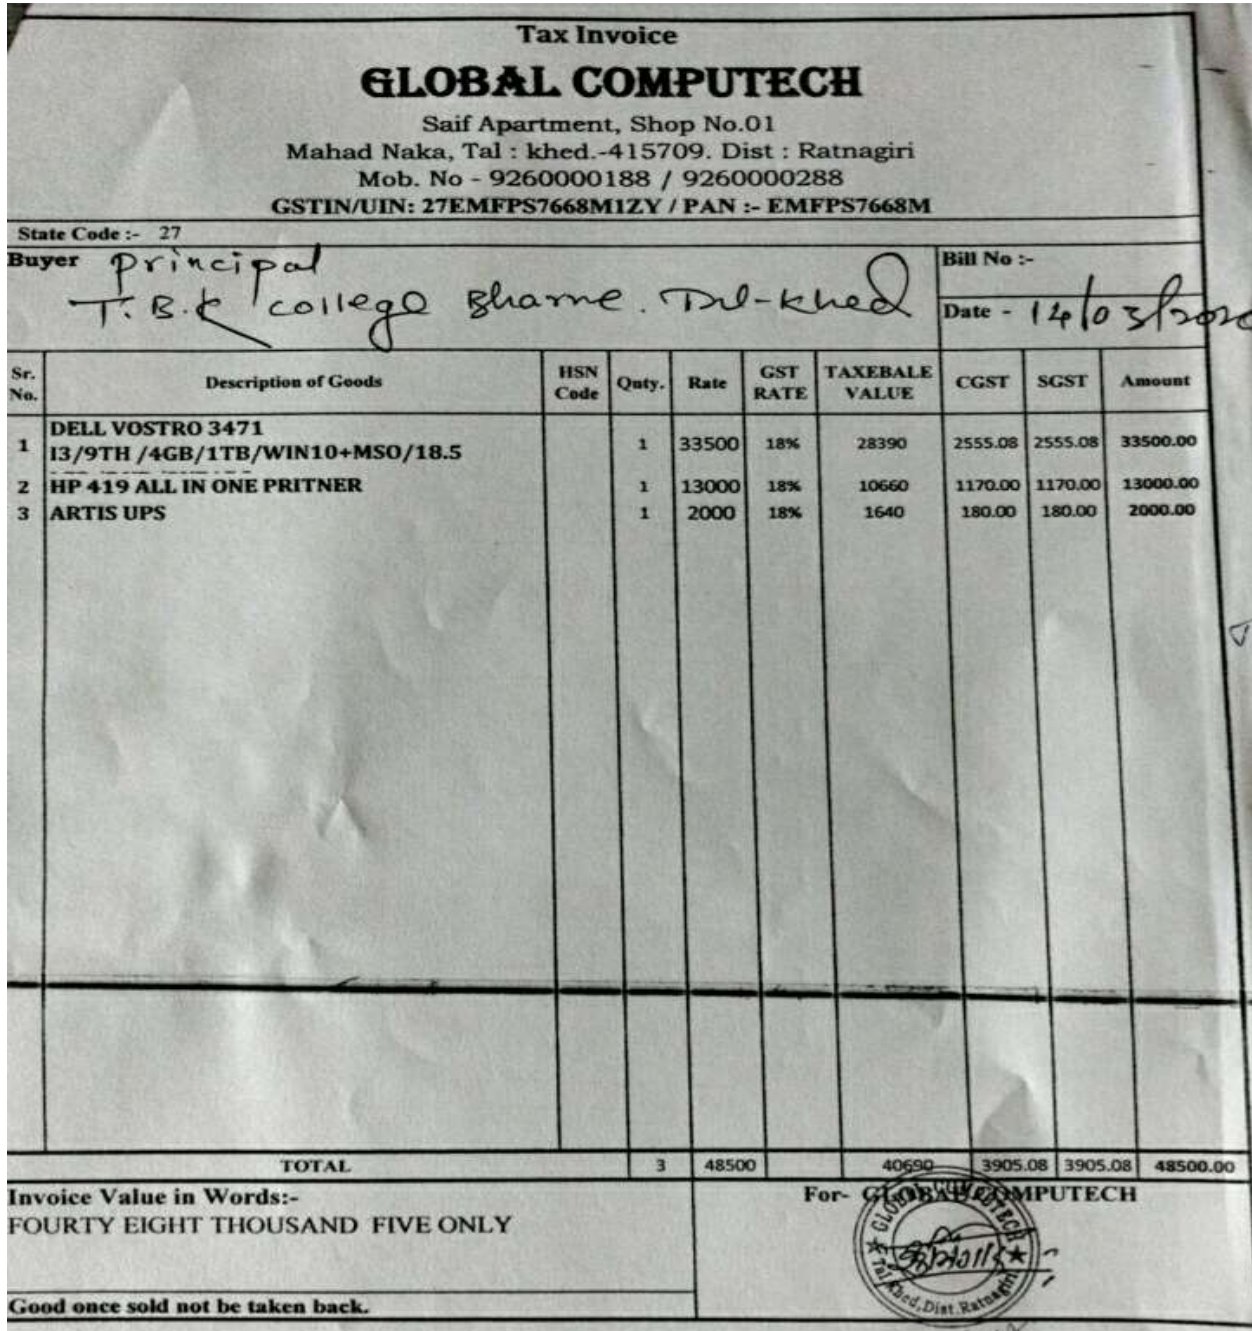 Tax Invoice
GLOBAL COMPUTECH
Saif Apartment, Shop No.01
Mahad Naka, Tal : khed.-415709. Dist : Ratnagiri
Mob. No - 9260000188 / 9260000288
GSTIN/UIN: 27EMFPS7668M1ZY / PAN :- EMFPS7668M
State Code :- 27
Buyer principal
T.B.K college Bharne. Tal-khed
Bill No :-
Date - 14/03/2020
Sr. No. Description of Goods HSN Code Qnty. Rate GST RATE TAXEBALE VALUE CGST SGST Amount
1 DELL VOSTRO 3471
I3/9TH /4GB/1TB/WIN10+MSO/18.5 1 33500 18% 28390 2555.08 2555.08 33500.00
2 HP 419 ALL IN ONE PRITNER 1 13000 18% 10660 1170.00 1170.00 13000.00
3 ARTIS UPS 1 2000 18% 1640 180.00 180.00 2000.00
TOTAL 3 48500 40690 3905.08 3905.08 48500.00
Invoice Value in Words:-
FOURTY EIGHT THOUSAND FIVE ONLY
For- GLOBAL COMPUTECH
GLOBAL COMPUTECH
Tal Khed, Dist. Ratnagiri
Good once sold not be taken back.